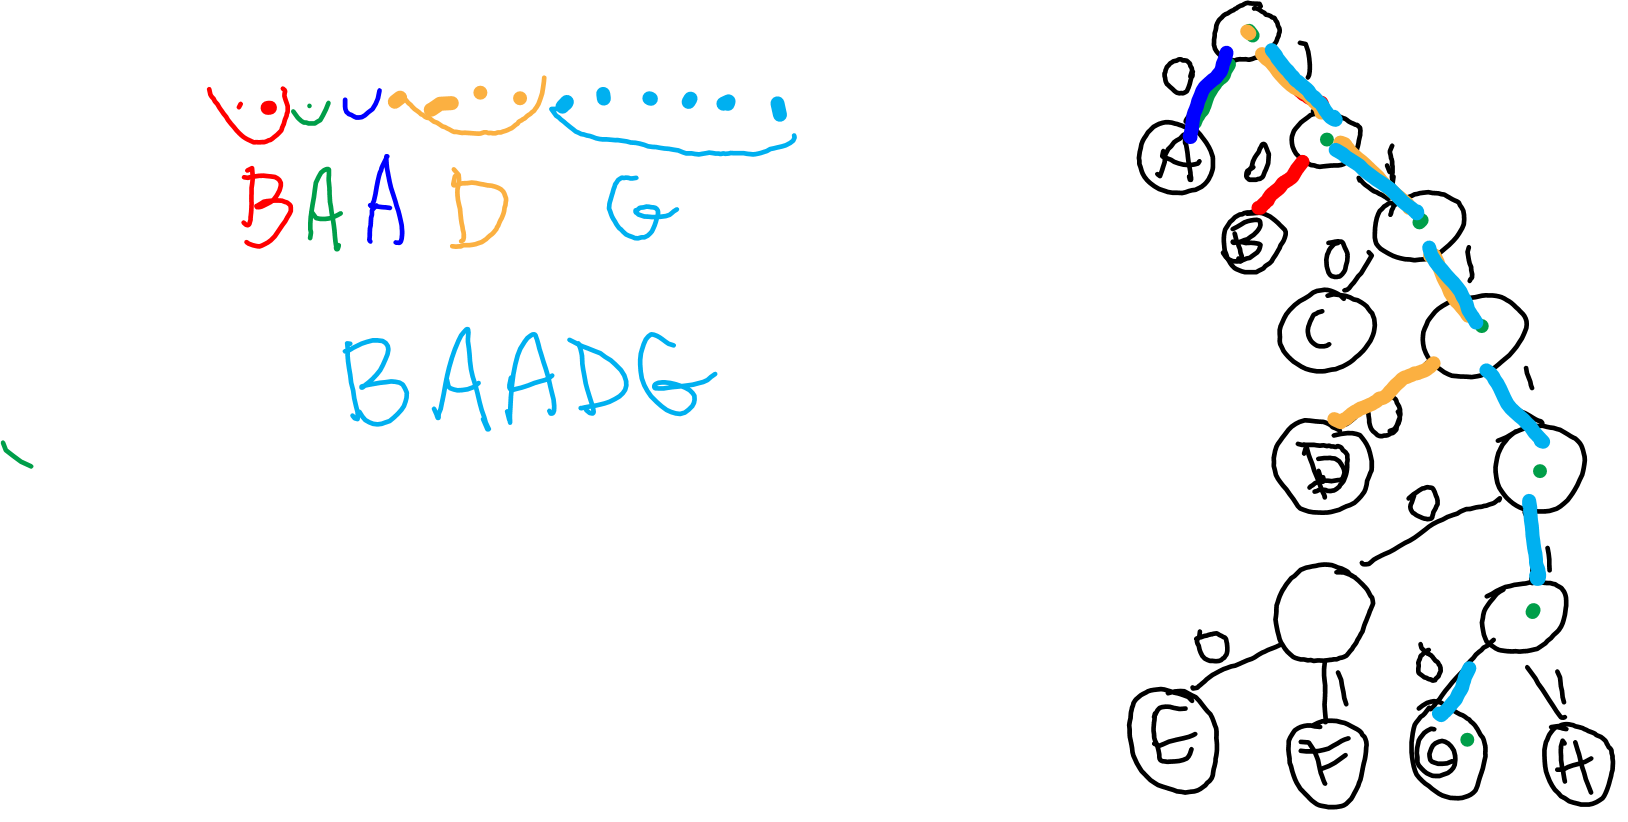 B A A D G
BAADG
0 1
A 0 1
B 0 1
C 1
0
D
0 1
0 1 0 1
E F G H